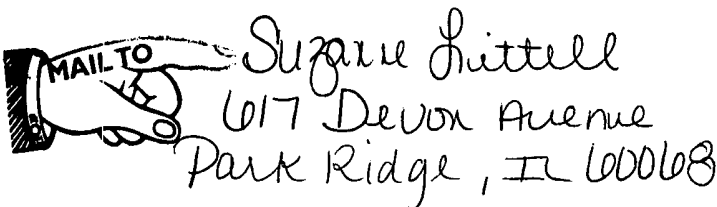 MAIL TO
Suzanne Littell
617 Devon Avenue
Park Ridge, IL 60068